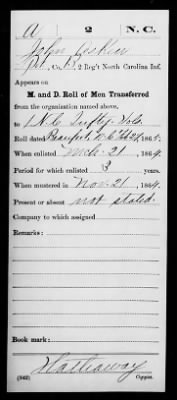 A 2 N.C.
John
Pvt., Co. B, 2 Reg't North Carolina Inf.
Appears on
M. and D. Roll of Men Transferred
from the organization named above,
to 1 N.C. Infty. Vols.
Roll dated Beaufort, N.C. Feb 27, 1865.
When enlisted Mch. 21, 1864.
Period for which enlisted 3 years.
When mustered in Nov. 21, 1864.
Present or absent not stated.
Company to which assigned
Remarks:
Book mark:
Hathaway
(362) Copyist.